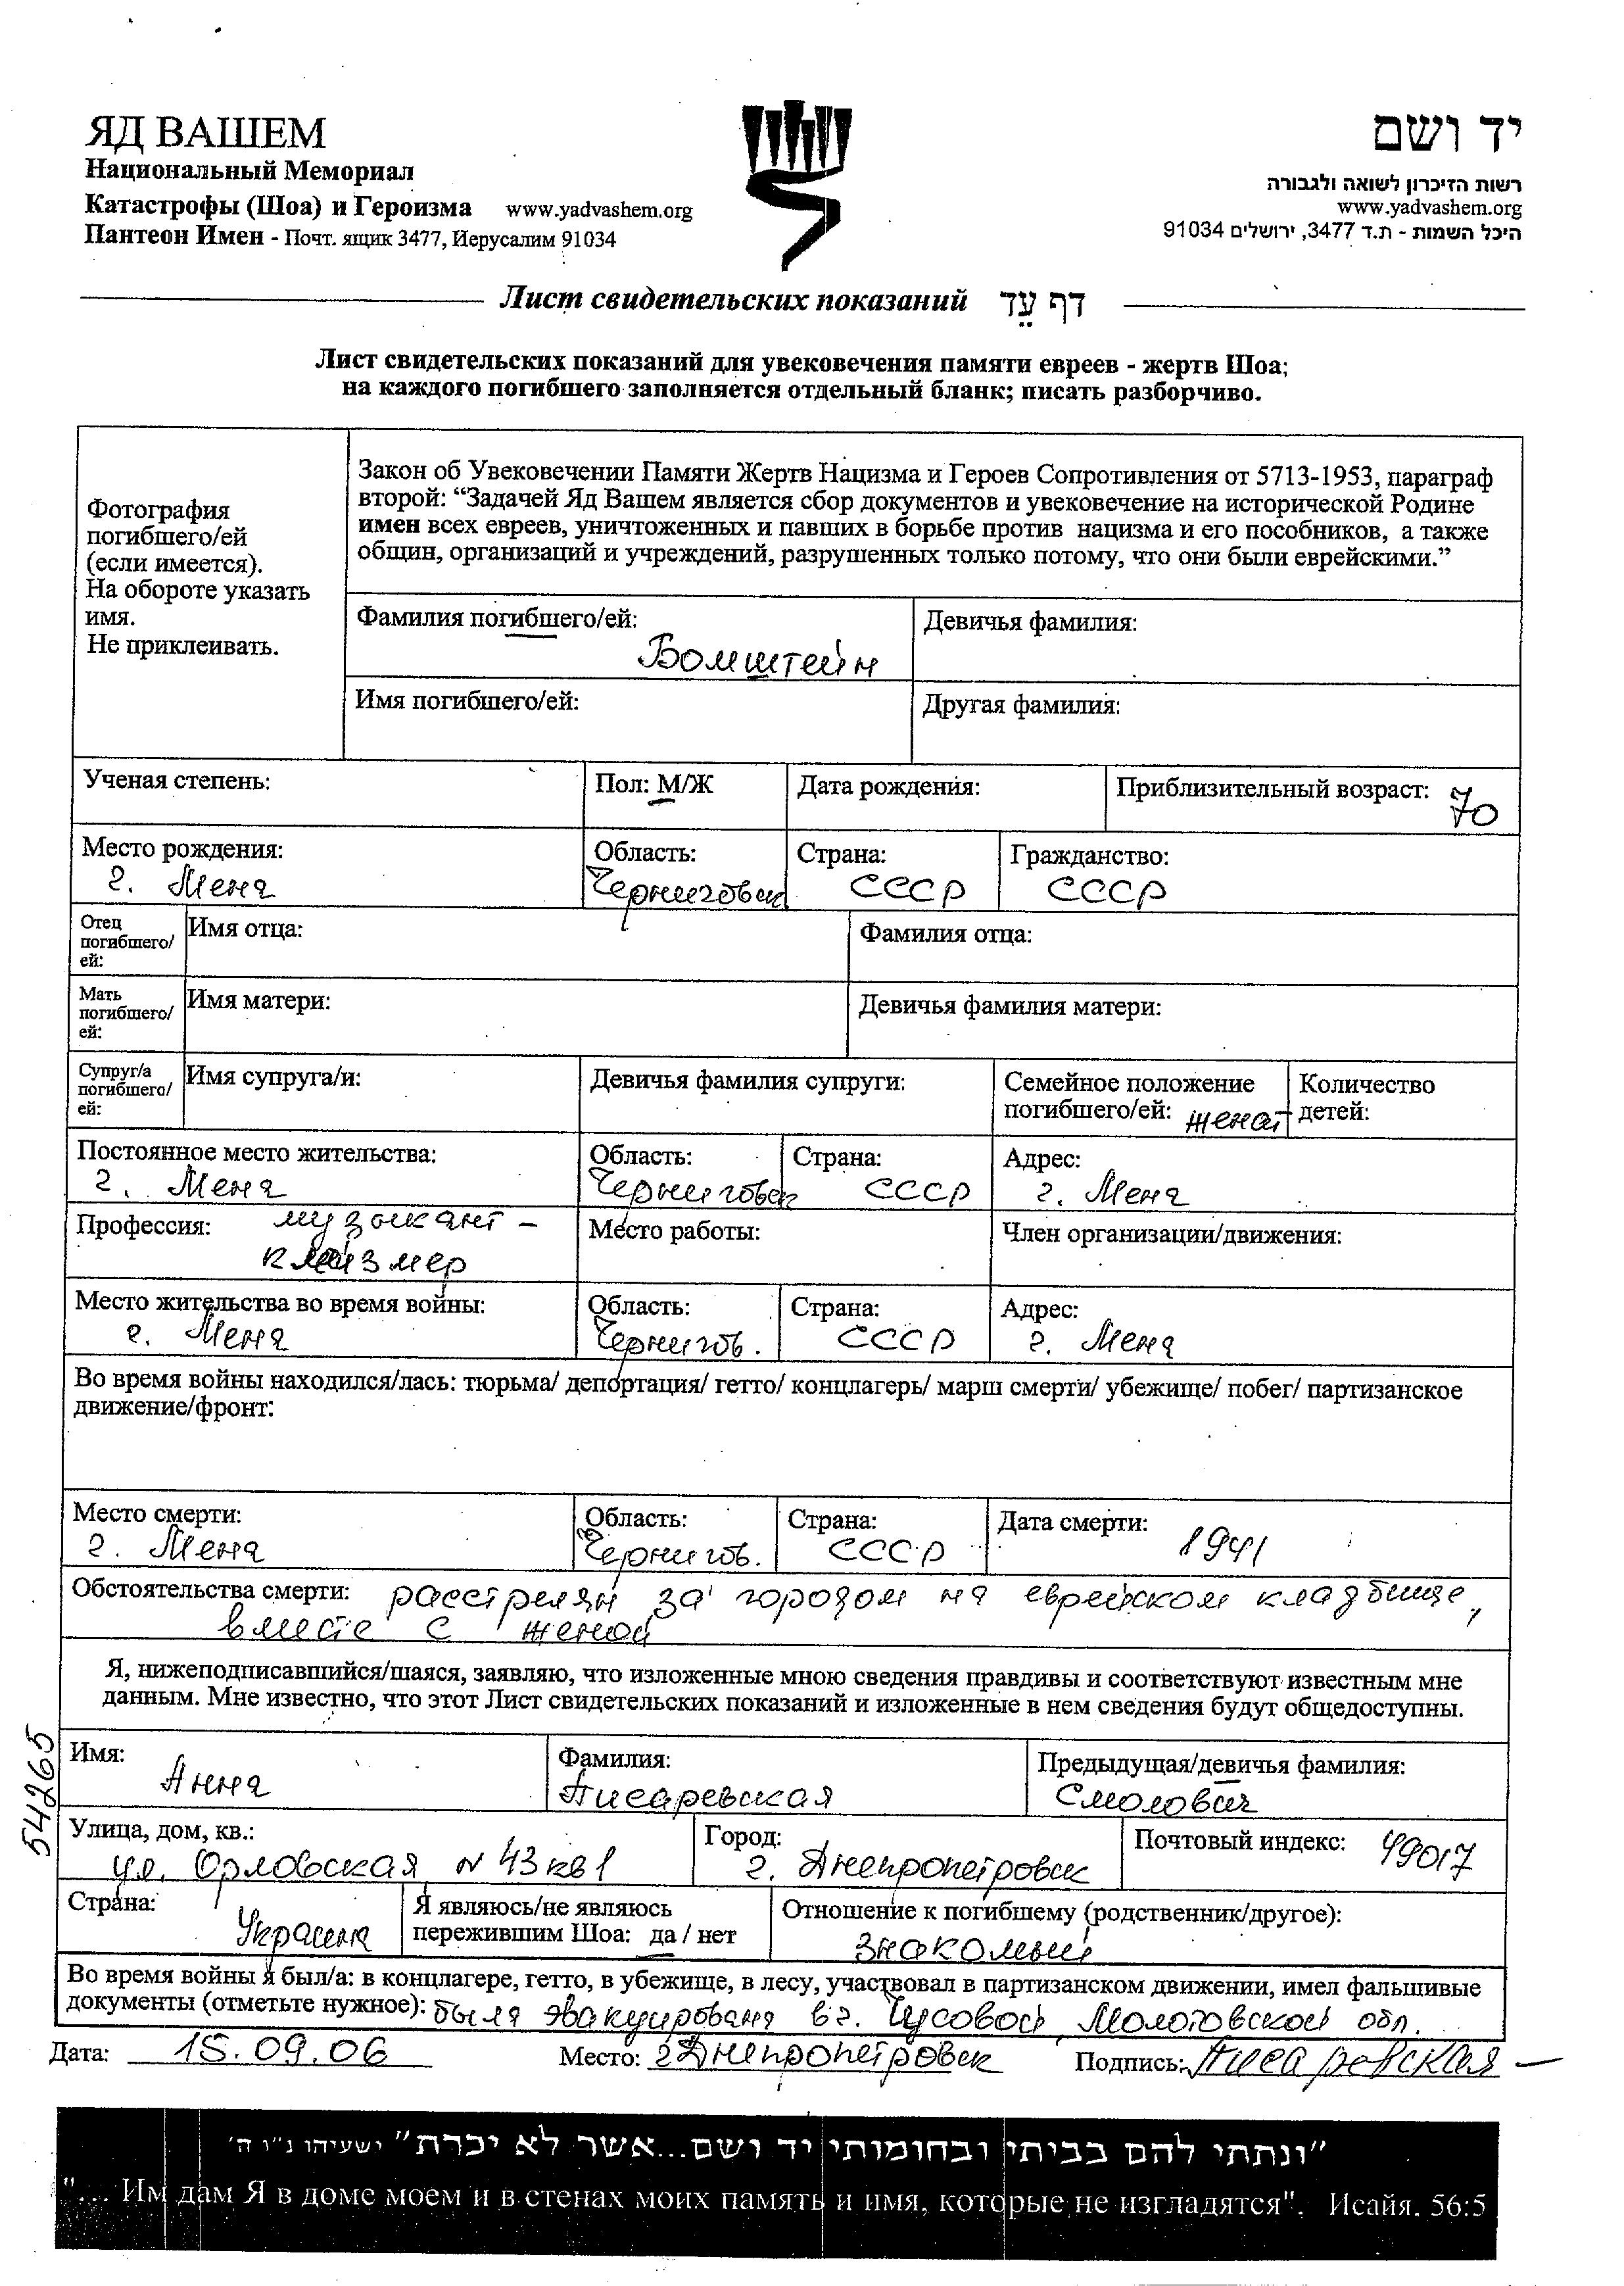 ЯД ВАШЕМ
Национальный Мемориал
Катастрофы (Шоа) и Героизма www.yadvashem.org
Пантеон Имен - Почт. ящик 3477, Иерусалим 91034
יד ושם
רשות הזיכרון לשואה ולגבורה
www.yadvashem.org
היכל השמות - ת.ד 3477, ירושלים 91034
Лист свидетельских показаний דף עֵד
Лист свидетельских показаний для увековечения памяти евреев - жертв Шоа;
на каждого погибшего заполняется отдельный бланк; писать разборчиво.
Фотография
погибшего/ей
(если имеется).
На обороте указать
имя.
Не приклеивать.
Закон об Увековечении Памяти Жертв Нацизма и Героев Сопротивления от 5713-1953, параграф
второй: “Задачей Яд Вашем является сбор документов и увековечение на исторической Родине
имен всех евреев, уничтоженных и павших в борьбе против нацизма и его пособников, а также
общин, организаций и учреждений, разрушенных только потому, что они были еврейскими.”
Фамилия погибшего/ей: Девичья фамилия:
Бомштейн
Имя погибшего/ей: Другая фамилия:
Ученая степень: Пол: М/Ж Дата рождения: Приблизительный возраст: 70
Место рождения: Область: Страна: Гражданство:
г. Мена Черниговск СССР СССР
Отец
погибшего/
ей:
Имя отца: Фамилия отца:
Мать
погибшего/
ей:
Имя матери: Девичья фамилия матери:
Супруг/а
погибшего/
ей:
Имя супруга/и: Девичья фамилия супруги: Семейное положение
погибшего/ей: женат
Количество
детей:
Постоянное место жительства: Область: Страна: Адрес:
г. Мена Черниговск СССР г. Мена
Профессия: музыкант -
клейзмер
Место работы: Член организации/движения:
Место жительства во время войны: Область: Страна: Адрес:
г. Мена Чернигов. СССР г. Мена
Во время войны находился/лась: тюрьма/ депортация/ гетто/ концлагерь/ марш смерти/ убежище/ побег/ партизанское
движение/фронт:
Место смерти: Область: Страна: Дата смерти: 1941
г. Мена Чернигов. СССР
Обстоятельства смерти: расстрелян за городом на еврейском кладбище,
вместе с женой
Я, нижеподписавшийся/шаяся, заявляю, что изложенные мною сведения правдивы и соответствуют известным мне
данным. Мне известно, что этот Лист свидетельских показаний и изложенные в нем сведения будут общедоступны.
54265
Имя: Фамилия: Предыдущая/девичья фамилия:
Анна Писаревская Смолович
Улица, дом, кв.: Город: Почтовый индекс: 49017
ул. Орловская N 43 кв 1 г. Днепропетровск
Страна: Украина
Я являюсь/не являюсь
пережившим Шоа: да / нет
Отношение к погибшему (родственник/другое):
знакомый
Во время войны я был/а: в концлагере, гетто, в убежище, в лесу, участвовал в партизанском движении, имел фальшивые
документы (отметьте нужное): была эвакуирована в г. Чусовой Молотовской обл.
Дата: 15.09.06 Место: г Днепропетровск Подпись: Писаревская
"ונתתי להם בביתי ובחומותי יד ושם...אשר לא יכרת" ישעיהו נ"ו ה'
"... Им дам Я в доме моем и в стенах моих память и имя, которые не изгладятся". Исайя. 56:5